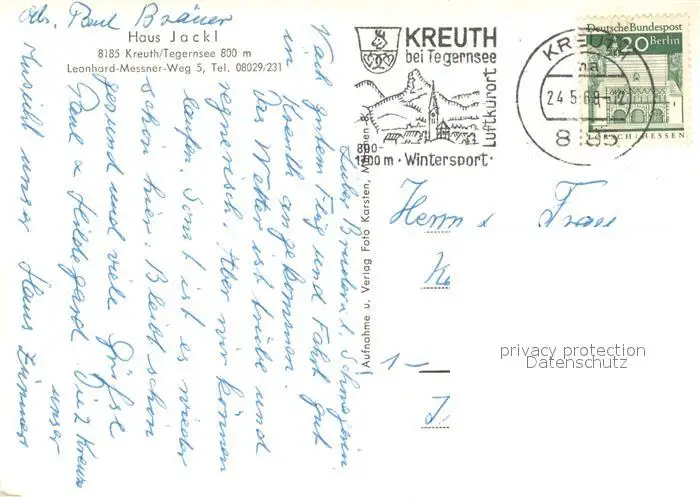 Abs. Paul Bräuer
Haus Jackl
8185 Kreuth/Tegernsee 800 m
Leonhard-Messner-Weg 5, Tel. 08029/231
Lieber Bruder u. Schwägerin
Nach gutem Flug und Fahrt gut
in Kreuth angekommen.
Das Wetter ist trübe und
regnerisch. Aber wir können
laufen. Sonst ist es wieder
schön hier. Bleibt schön
gesund und viele Grüße
Paul & Hildegard. Die 2 Kreuze
unser
Ansicht unser Haus Zimmer
Aufnahme u. Verlag Foto Karsten, München 8
KREUTH
bei Tegernsee
Luftkurort
800-
1700 m · Wintersport ·
KREUTH
24.5.68-12
8185
Deutsche Bundespost
20 Berlin
LORSCH/HESSEN
Herrn u. Frau
1–
privacy protection
Datenschutz